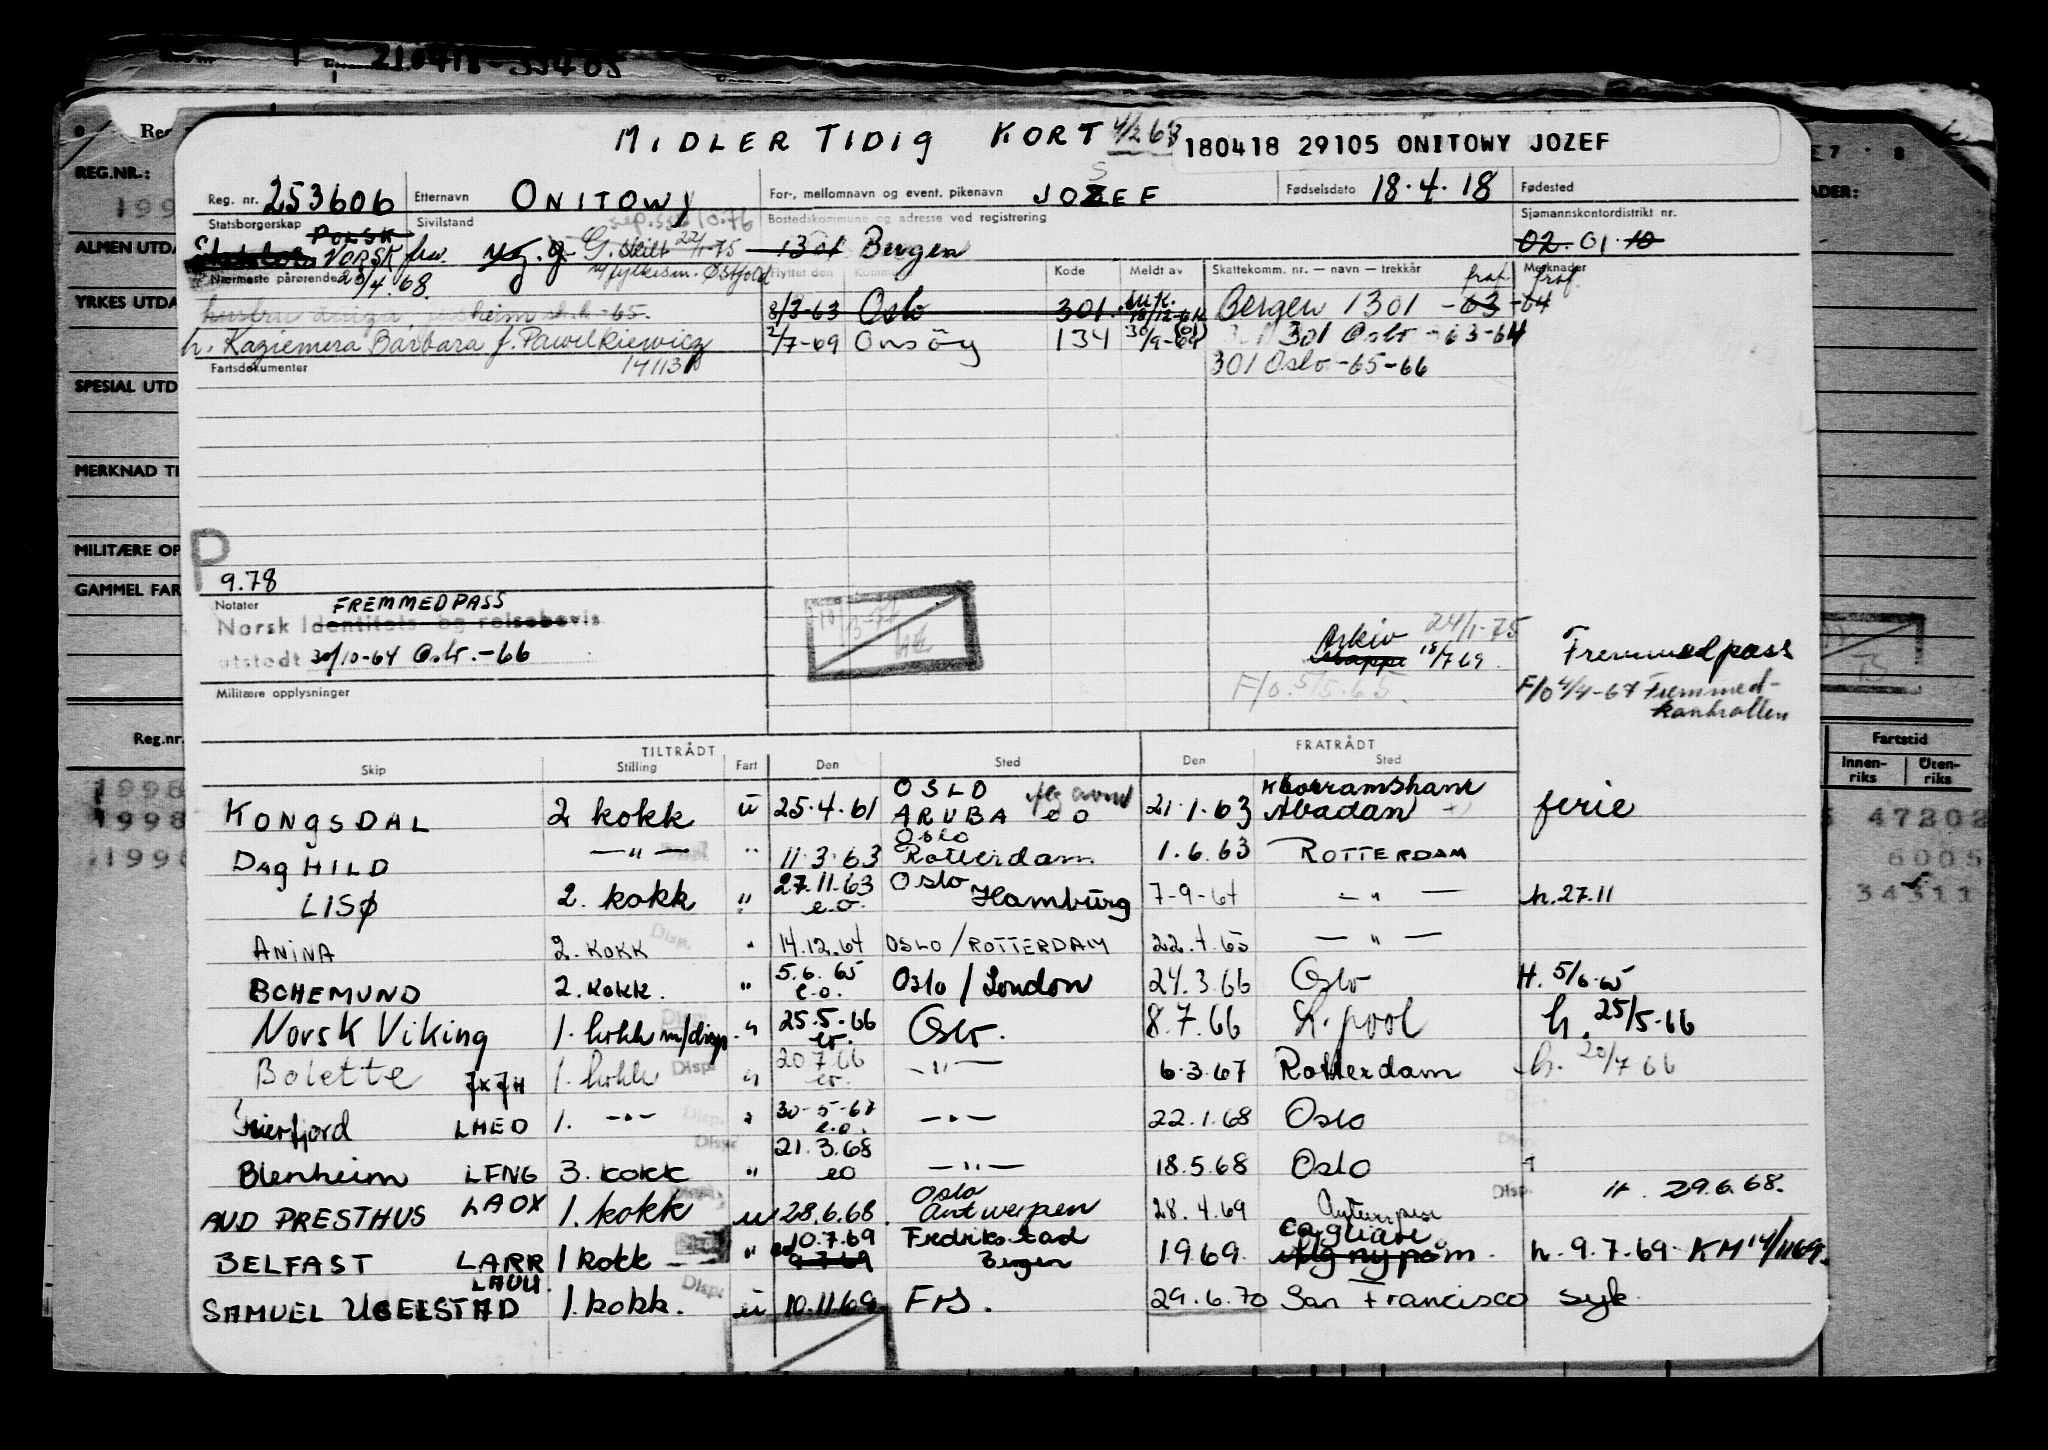 210418
MIDLERTIDIG KORT 4/2 63
180418 29105 ONITOWY JOZEF
Reg. nr. 253606 Etternavn ONITOWY For-, mellomnavn og event. pikenavn JOZEF S Fødselsdato 18.4.18 Fødested
Statsborgerskap POLSK Sivilstand sep. 10.76 Bostedskommune og adresse ved registrering Sjømannskontordistrikt nr.
NORSK G. Skilt 22/1-75 1301 Bergen 02 01 10
Nærmeste pårørende 23/4.68. v/fylkesm. Østfold Flyttet den Kode Meldt av Skattekomm. nr. — navn — trekkår Merknader
hustru -65. 8/3-63 Oslo 301 Bergen 1301 -63 -64
h. Kaziemera Barbara f. Pawelkiewicz 2/7-69 Onsöy 134 30/9-69 301 Oslo - 63-64
Fartsdokumenter 301 Oslo -65-66
REG.NR.:
ALMEN UTDA
YRKES UTDA
SPESIAL UTD
MERKNAD TI
MILITÆRE OP
GAMMEL FAR
P
9.78
Notater FREMMEDPASS
Norsk Identitets- og reisebevis
utstedt 30/10-64 Oslo.-66
Arkiv 24/1-75
Mappe 18/7 69.
Fremmedpass
F/o. 5/5.65.
F/o 4/4-67 Fremmed-
kontrollen
Militære opplysninger
TILTRÅDT FRATRÅDT
Skip Stilling Fart Den Sted Den Sted
Reg.nr. Fartstid
Innen-riks Uten-riks
KONGSDAL 2 kokk u 25.4.61 OSLO ARUBA e o 21.1.63 Khorramshahr Abadan ferie
DAGHILD —"— " 11.3.63 Oslo Rotterdam 1.6.63 ROTTERDAM
LISØ 2. kokk " 27.11.63 e.o. Oslo Hamburg 7-9-64 —"— h.27.11
ANINA 2. KOKK Disp. " 14.12.64 OSLO/ROTTERDAM 22.4.65 —"—
BOHEMUND 2. KOKK. " 5.6.65 e.o. Oslo/London 24.3.66 Oslo H. 5/6-65
Norsk Viking 1. kokk m/disp " 25.5.66 eo. Oslo. 8.7.66 L.pool h. 25/5-66
Bolette JXJH 1. kokk Disp. " 20 7 66 eo. —"— 6.3.67 Rotterdam h. 20/7 66
Frierfjord LMED 1. —"— Disp. " 30-5-67 e.o. —"— 22.1.68 Oslo
Blenheim LFNG 3. kokk Disp. " 21.3.68 eo —"— 18.5.68 Oslo
AUD PRESTHUS LAOX 1. kokk Disp. u 28.6.68. Oslo Antwerpen 28.4.69 Antwerpen Disp. H. 29.6.68.
BELFAST LARR 1 kokk " eo 10.7.69 9.7.69 Fredrikstad Bergen 1969. Cagliari h. 9.7.69. KM 14/1169.
SAMUEL UGELSTAD LAUU. 1. kokk. Disp. u 10.11.69 FrS. 29.6.70 San Francisco syk
47202
6005
34311